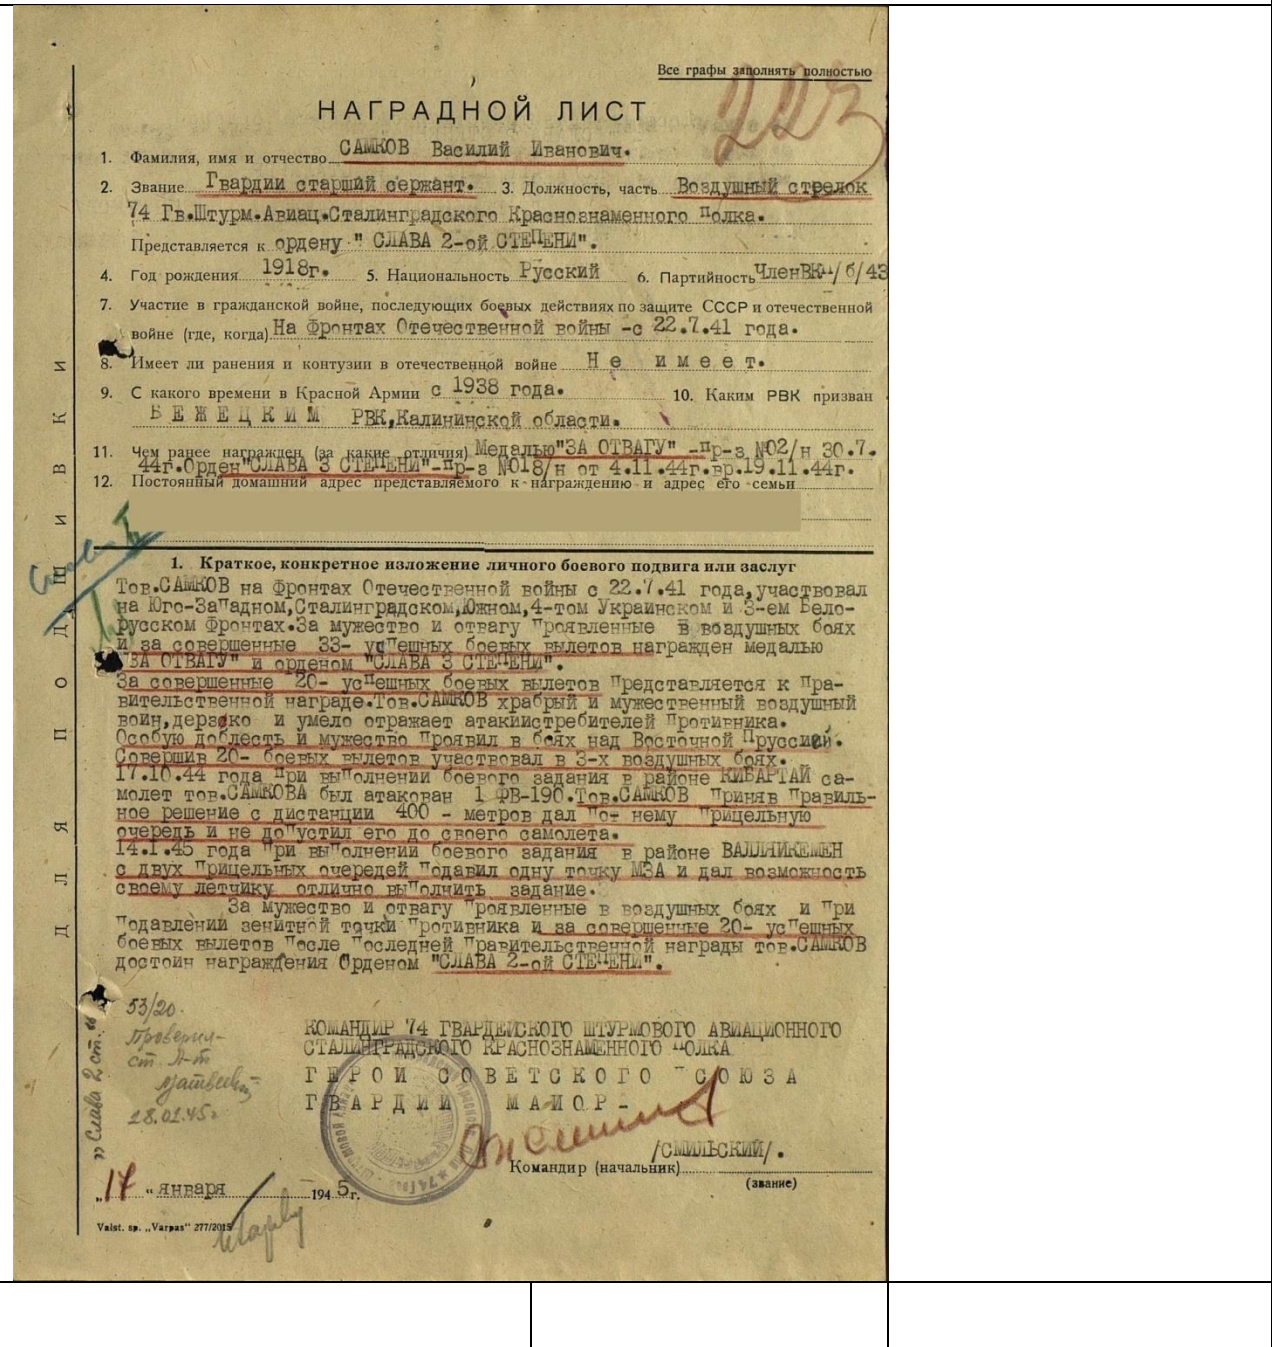 Все графы заполнять полностью
223
НАГРАДНОЙ ЛИСТ
1. Фамилия, имя и отчество САМКОВ Василий Иванович.
2. Звание Гвардии старший сержант. 3. Должность, часть Воздушный стрелок
74 Гв.Штурм.Авиац.Сталинградского Краснознаменного Полка.
Представляется к ордену " СЛАВА 2-ой СТЕПЕНИ".
4. Год рождения 1918г. 5. Национальность Русский 6. Партийность ЧленВКП/б/43
7. Участие в гражданской войне, последующих боевых действиях по защите СССР и отечественной
войне (где, когда) На Фронтах Отечественной войны -с 22.7.41 года.
8. Имеет ли ранения и контузии в отечественной войне Не имеет.
9. С какого времени в Красной Армии с 1938 года. 10. Каким РВК призван
БЕЖЕЦКИМ РВК,Калининской области.
11. Чем ранее награжден (за какие отличия) Медалью"ЗА ОТВАГУ" -пр-з №02/н 30.7.
44г.Орден"СЛАВА 3 СТЕПЕНИ"-пр-з №018/н от 4.11.44г.вр.19.11.44г.
12. Постоянный домашний адрес представляемого к награждению и адрес его семьи
ДЛЯ ПОДШИВКИ
1. Краткое, конкретное изложение личного боевого подвига или заслуг
Тов.САМКОВ на Фронтах Отечественной войны с 22.7.41 года,участвовал
на Юго-Западном,Сталинградском,Южном,4-том Украинском и 3-ем Бело-
русском Фронтах.За мужество и отвагу проявленные в воздушных боях
и за совершенные 33- успешных боевых вылетов награжден медалью
"ЗА ОТВАГУ" и орденом "СЛАВА 3 СТЕПЕНИ".
За совершенные 20- успешных боевых вылетов Представляется к Пра-
вительственной награде.Тов.САМКОВ храбрый и мужественный воздушный
воин,дерзко и умело отражает атакиистребителей Противника.
Особую доблесть и мужество Проявил в боях над Восточной Пруссией.
Совершив 20- боевых вылетов участвовал в 3-х воздушных боях.
17.10.44 года При выполнении боевого задания в районе КИБАРТАЙ са-
молет тов.САМКОВА был атакован 1 ФВ-190.Тов.САМКОВ Приняв Правиль-
ное решение с дистанции 400 - метров дал По- нему Прицельную
очередь и не допустил его до своего самолета.
14.1.45 года При выполнении боевого задания в районе ВАЛЛЯИКЕМЕН
с двух Прицельных очередей Подавил одну точку МЗА и дал возможность
своему летчику отлично выполнить задание.
За мужество и отвагу Проявленные в воздушных боях и При
Подавлении зенитной точки Противника и за совершенные 20- успешных
боевых вылетов После Последней Правительственной награды тов.САМКОВ
достоин награждения Орденом "СЛАВА 2-ой СТЕПЕНИ".
53/20.
Проверил-
ст. л-т
28.01.45г
Слава 2 ст.
КОМАНДИР 74 ГВАРДЕЙСКОГО ШТУРМОВОГО АВИАЦИОННОГО
СТАЛИНГРАДСКОГО КРАСНОЗНАМЕННОГО ПОЛКА
ГЕРОЙ СОВЕТСКОГО СОЮЗА
ГВАРДИИ МАЙОР-
/СМИЛЬСКИЙ/.
Командир (начальник)
(звание)
„17" января 1945г.
Valst. sp. „Varpas" 277/2015